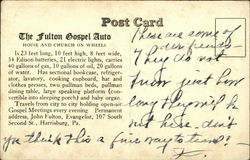 Post Card
The Fulton Gospel Auto
HOUSE AND CHURCH ON WHEELS
Is 23 feet long, 10 feet high, 8 feet wide,
54 Edison batteries, 21 electric lights, carries
40 gallons of gas, 10 gallons of oil, 20 gallons
of water. Has sectional bookcase, refrigerator,
lavatory, cooking cupboard, hat and
clothes presses, two pullman beds, pullman
dining table, large speaking platform (convertible
into sleeping porch) and baby organ.
Travels from city to city holding open-air
Gospel Meetings every evening. Permanent
address, John Fulton, Evangelist, 107 South
Second St., Harrisburg, Pa.
These are some of
our friends
They do not
know just how
long they will be
out here. don't
you think this is a fine way to travel?